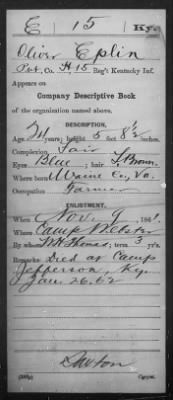 E 15 Ky.
Oliver Eplin
Pvt., Co. H, 15 Reg't Kentucky Inf.
Appears on
Company Descriptive Book
of the organization named above.
DESCRIPTION.
Age 21 years; height 5 feet 8½ inches.
Complexion Fair
Eyes Blue; hair L. Brown
Where born Wayne Co, Va.
Occupation Farmer
ENLISTMENT.
When Nov. 9, 1861.
Where Camp Webster
By whom W H Thomas; term 3 y'rs.
Remarks: Died at Camp
Jefferson, Ky.
Jan. 26. 62
Copyist.